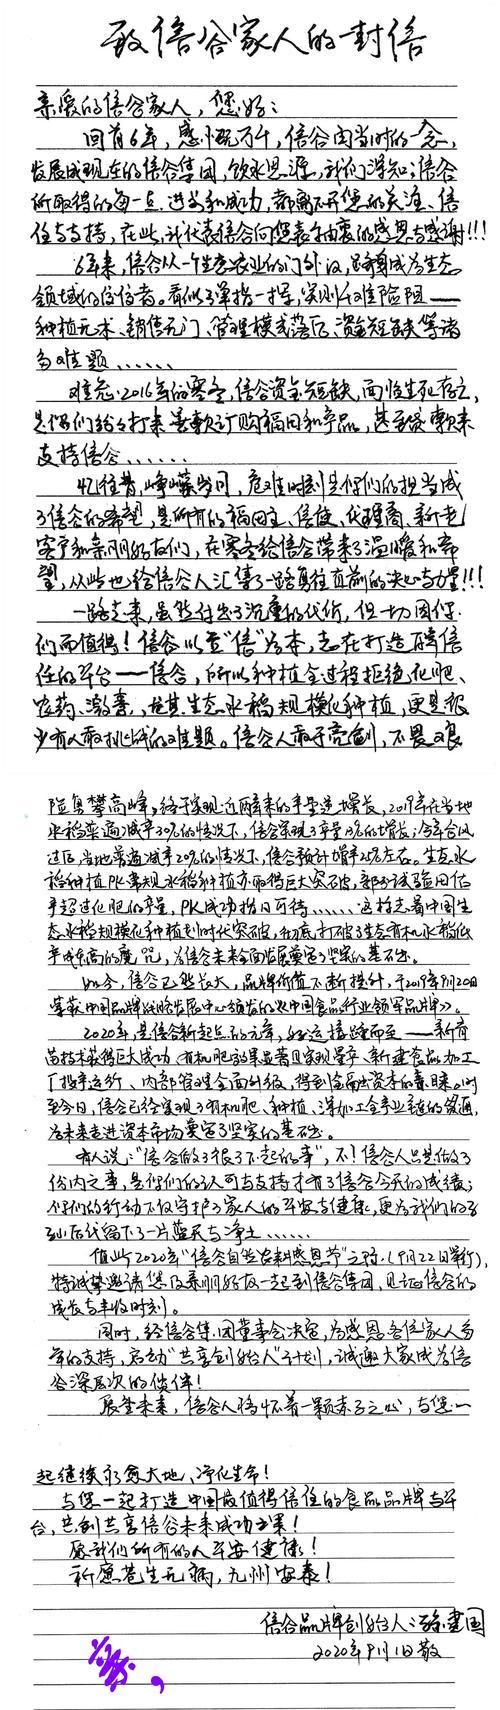 致倍谷家人的一封信
亲爱的倍谷家人，您好：
回首6年，感慨万千，倍谷由当时的一念，
发展成现在的倍谷集团，饮水思源，我们深知：倍谷
所取得的每一点进步和成功，都离不开您的关注、信
任与支持，在此，我代表倍谷向您表示由衷的感恩与感谢!!!
6年来，倍谷从一个生态农业的门外汉，跻身成为生态
领域的佼佼者。看似弹指一挥，实则千难险阻——
种植无术、销售无门、管理模式落后、资金短缺等诸
多难题……
难忘2016年的寒冬，倍谷资金短缺，面临生死存亡，
是你们纷纷打来善款订购福田和产品，甚至贷款来
支持倍谷……
忆往昔，峥嵘岁月，危难时刻是你们的担当成
了倍谷的希望，是所有的福田主、倍使、代理商、新老
客户和亲朋好友们，在寒冬给倍谷带来了温暖和希
望，从此也给倍谷人汇集了一路勇往直前的决心与力量!!!
一路走来，虽然付出了沉重的代价，但一切因你
们而值得！倍谷以立“信”为本，志在打造可信
任的平台——倍谷，所以种植全过程拒绝化肥、
农药、激素，尤其生态水稻规模化种植，更是很
少有人敢挑战的难题。倍谷人敢于亮剑，不畏艰
险勇攀高峰，终于实现近两年来的产量逆增长，2019年在当地
水稻普遍减产30%的情况下，倍谷实现了产量10%的增长；今年台风
过后，当地普遍减产20%的情况下，倍谷预计增产20%左右。生态水
稻种植PK常规水稻种植亦取得巨大突破，部分试验田估
产超过化肥的产量，PK成功指日可待……这标志着中国生
态水稻规模化种植划时代突破，彻底打破了生态有机水稻低
产或无高的魔咒，为倍谷未来全面发展奠定了坚实的基础。
如今，倍谷已然长大，品牌价值不断提升，于2019年9月20日
荣获中国品牌战略发展中心颁发的《中国食品行业领军品牌》。
2020年，是倍谷新起点的元年，好运接踵而至——新育
苗技术获得巨大成功、有机肥效果显著且实现量产、新建食品加工
厂投产运行、内部管理全面升级，得到金融资本的青睐。时
至今日，倍谷已经实现了有机肥、种植、深加工全产业链的贯通，
为未来走进资本市场奠定了坚实的基础。
有人说：“倍谷做了很了不起的事”，不！倍谷人只是做了
份内之事，是你们的认可与支持才有了倍谷今天的成绩；
你们的行动不仅守护了家人的平安与健康，更为我们的子
孙后代留下了一片蓝天与净土……
值此2020年“倍谷自然农耕感恩节”之际（9月22日举行），
特诚挚邀请您及亲朋好友一起到倍谷集团，见证倍谷的
成长与丰收时刻。
同时，经倍谷集团董事会决定，为感恩各位家人多
年的支持，启动“共享创始人”计划，诚邀大家成为倍
谷深层次的伙伴！
展望未来，倍谷人将怀着一颗赤子之心，与您一
起继续疗愈大地、净化生命！
与您一起打造中国最值得信任的食品品牌与平
台，共创共享倍谷未来成功之果！
愿我们所有的人平安健康！
祈愿苍生无病，九州安泰！
倍谷品牌创始人：孙建国
2020年9月1日敬